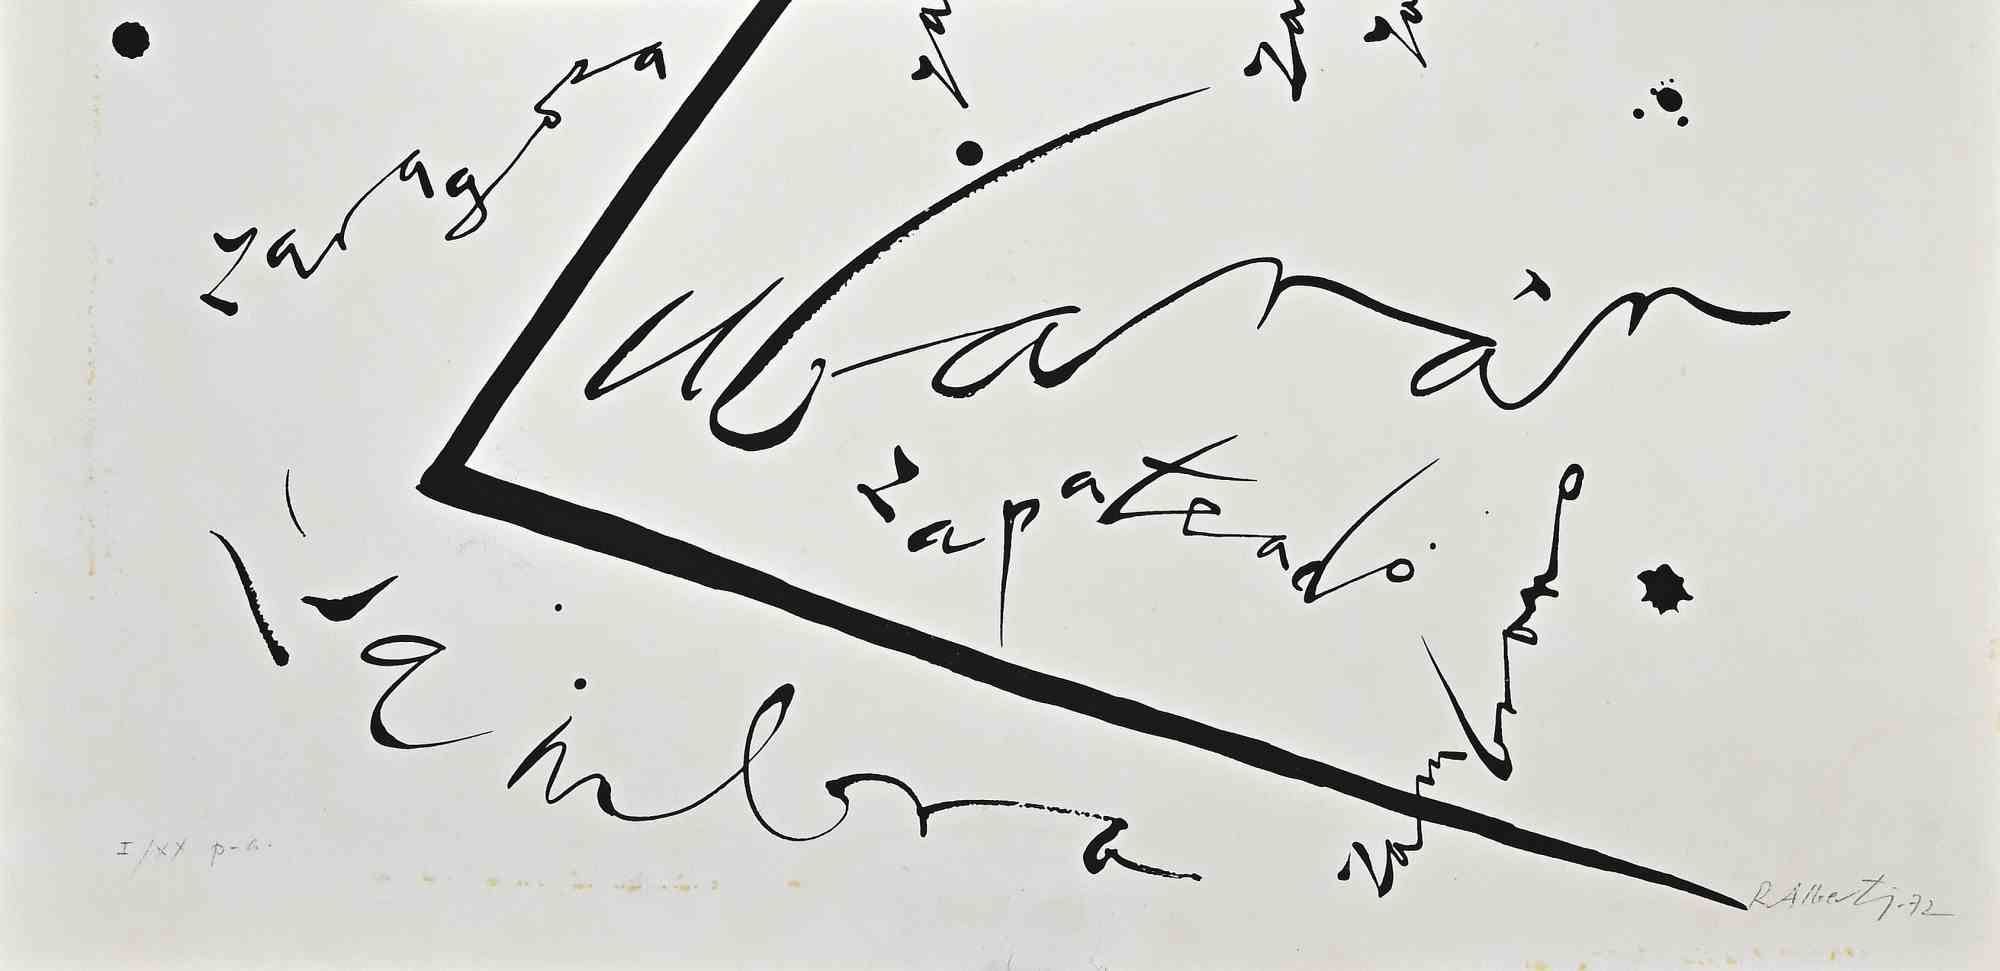 zaragoza
za
za
za
Zurbarán
zapateado
zambrano
zambra
I/XX p.a.
R. Alberti-72